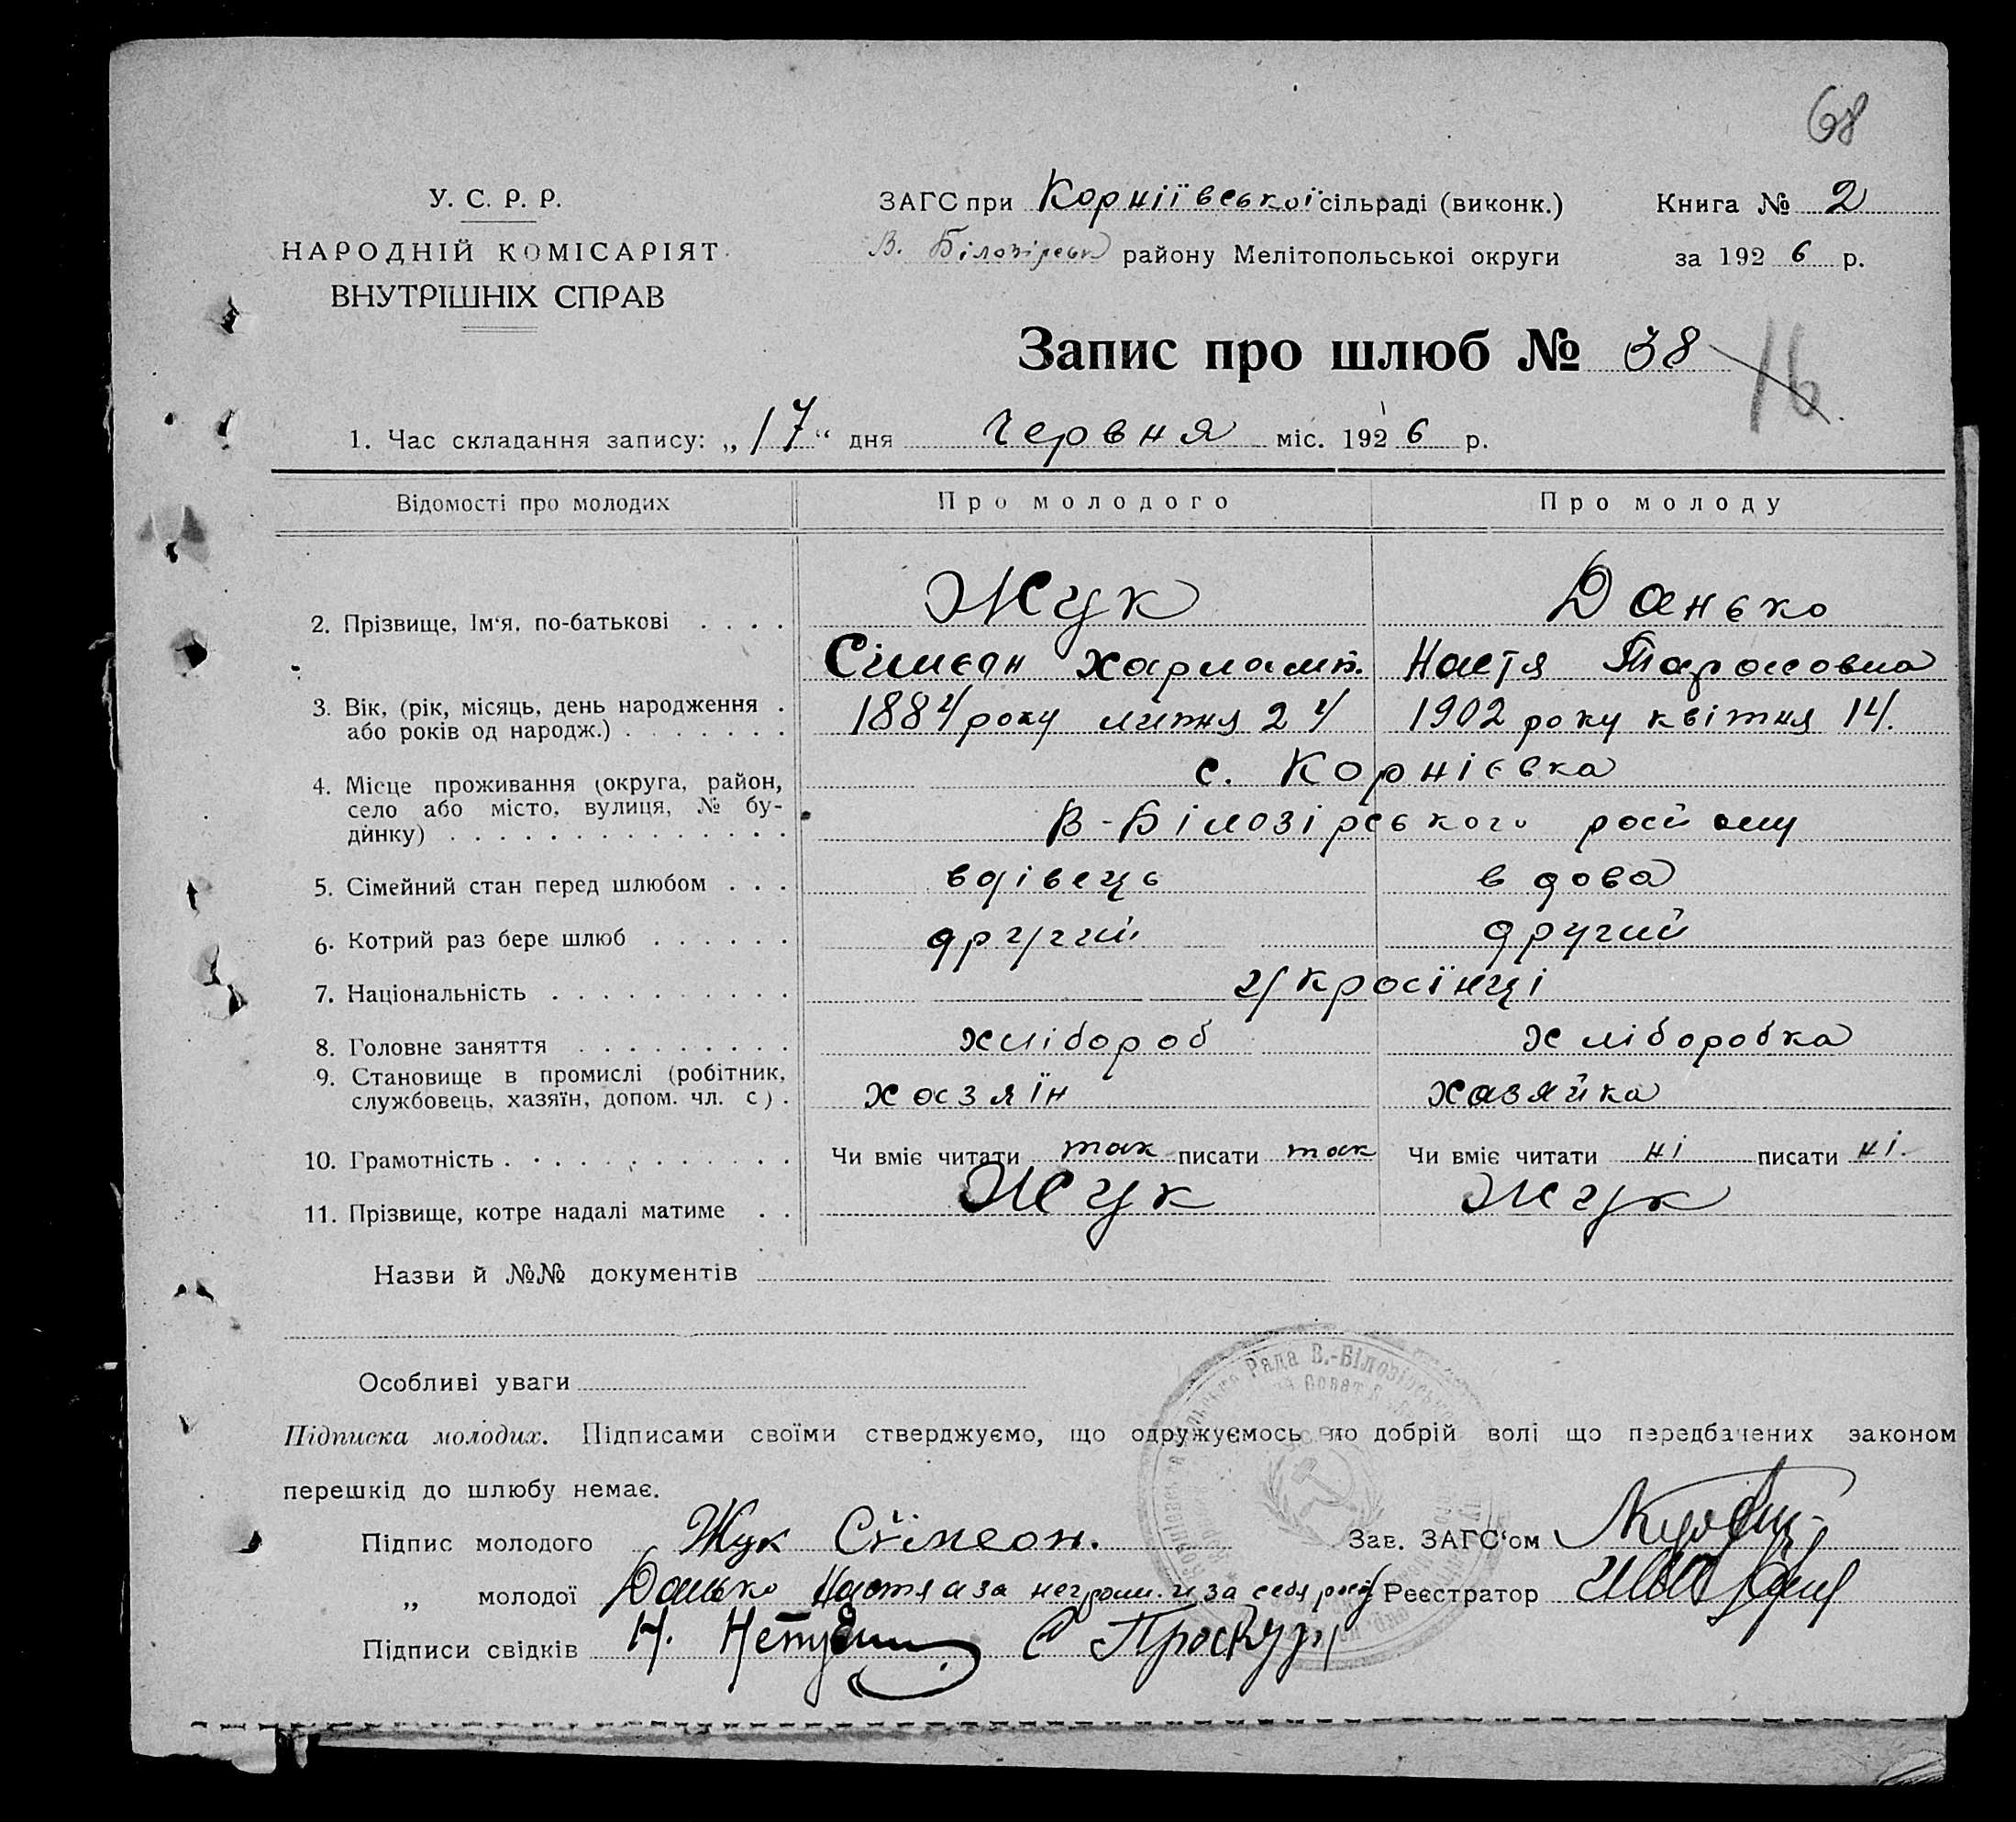 68
У. С. Р. Р.
НАРОДНІЙ КОМІСАРІЯТ
ВНУТРІШНІХ СПРАВ
ЗАГС при Корніївської сільраді (виконк.)
В. Білозірськ району Мелітопольськоі округи
Книга № 2
за 1926 р.
Запис про шлюб № 38 16
1. Час складання запису: „17“ дня Червня міс. 1926 р.
Відомості про молодих Про молодого Про молоду
2. Прізвище, Ім‘я, по-батькові . . . . Жук Данько
Сімеон Харламп. Настя Тарасовна
3. Вік, (рік, місяць, день народження . або років од народж.) . . . . . . . 1884 року липня 24 1902 року квітня 14.
4. Місце проживання (округа, район, село або місто, вулиця, № будинку) . . . . . . . . . . . . . . с. Корнієвка
В-Білозірського району
5. Сімейний стан перед шлюбом . . . вдівець вдова
6. Котрий раз бере шлюб . . . . . . другий другий
7. Національність . . . . . . . . . . Українці
8. Головне заняття . . . . . . . . . хлібороб хліборобка
9. Становище в промислі (робітник, службовець, хазяїн, допом. чл. с) . хазяїн хазяйка
10. Грамотність . . . . . . . . . . . . Чи вміє читати так писати так Чи вміє читати ні писати ні.
11. Прізвище, котре надалі матиме . . Жук Жук
Назви й №№ документів
Особливі уваги
Рада В.-Білозірсько
Підписка молодих. Підписами своїми стверджуємо, що одружуємось по добрій волі що передбачених законом
перешкід до шлюбу немає.
Підпис молодого Жук Сімеон. Зав. ЗАГС‘ом
„ молодої Данько Настя а за неграм. и за себя Реєстратор
Підписи свідків Н. С Проскур